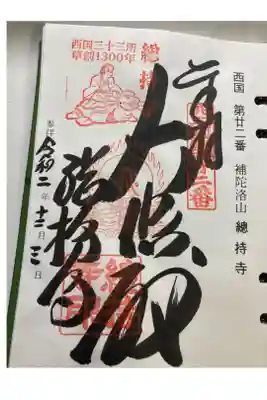 西国 第廿二番 補陀洛山 總持寺
大悲殿
西国三十三所
草創1300年
總持寺
令和二年十二月三日